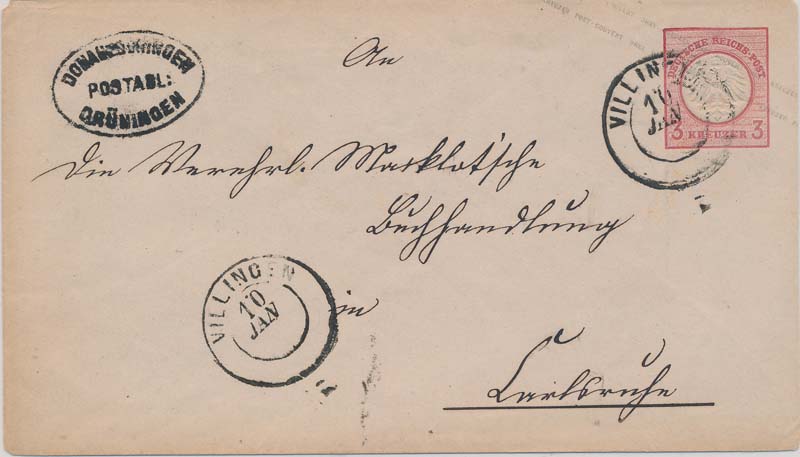 DONAUESCHINGEN
POSTABL:
GRÜNINGEN
DEUTSCHE REICHS-POST
3 KREUZER 3
VILLINGEN
10
JAN
An
Die Verehrl. Macklot'sche
Buchhandlung
in
Carlsruhe
VILLINGEN
10
JAN